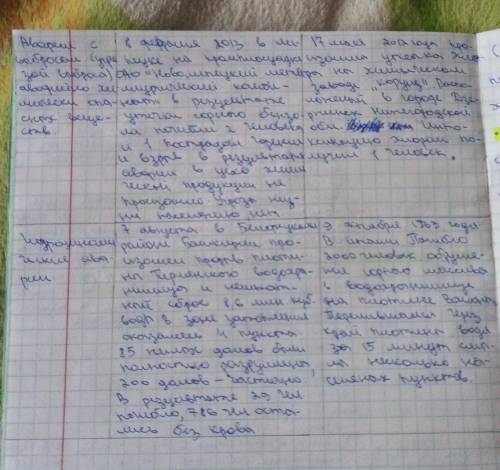 Аварии с
выбросом (угро
зой выброса)
аварийно хи
мически опа
сных веще-
ств.
8 февраля 2013 в Ли
пецке на промплощадке
ОАО "Новолипецкий металлур
гический комби-
нат" в результате
утечки сырого бензо
ла погибли 2 человека
и 1 пострадал
и взрыв в результате
аварии в цехе хими
ческой продукции не
произошло. Угроза жиз
ни населению нет
17 мая 2012 года про
изошла утечка
на химическом
заводе "Корунд" распо
ложенный в городе Дзе
ржинск Нижегородской
обл Инто-
ксикацию хлором по-
лучил 1 человек.
Гидродинами
ческие ава
рии
7 августа в Белорецком
районе Башкирии про
изошел прорыв плоти
ны Тирлянского водохра
нилища и
сброс 8,6 млн куб.
воды в зоне затопления
оказалось 4 пункта
85 жилых домов были
полностью разрушены,
200 домов - частично
В результате 29 чел
погибло, 786 чел оста
лись без крова
9 октября 1963 года
В Италии Погибло
3000 человек обруше
ние горного массива
в водохранилище
на плотине Вайонт
Перелившаяся через
край плотины вода
за 15 минут смы-
ла несколько на-
селённых пунктов.